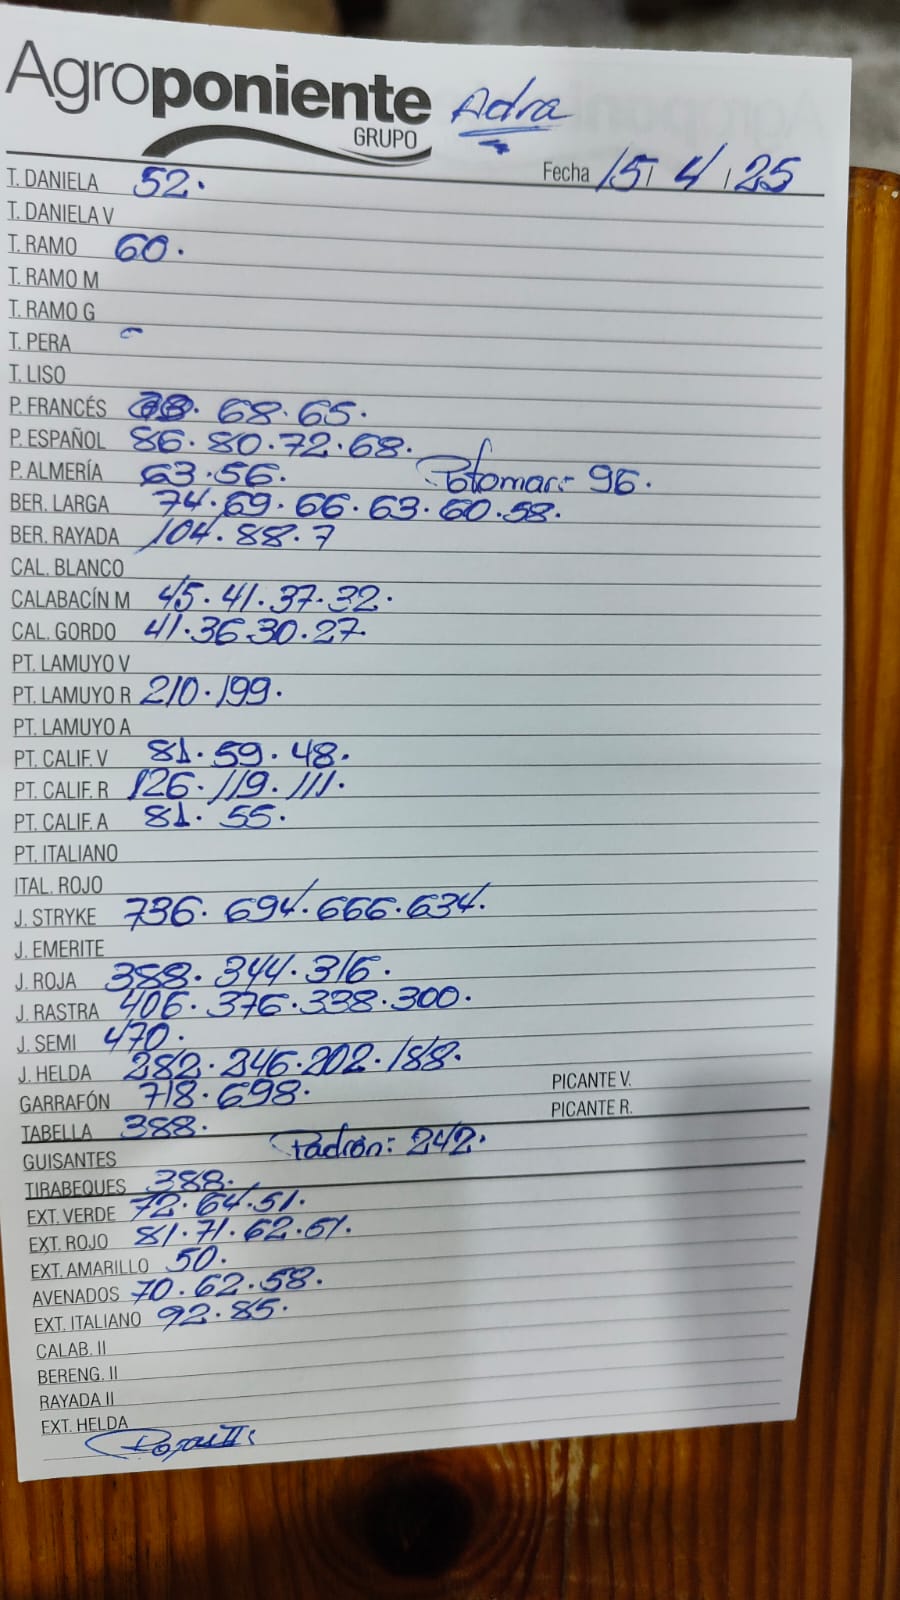 Agroponiente Adra
GRUPO
Fecha 15 / 4 / 25
T. DANIELA 52.
T. DANIELA V
T. RAMO 60.
T. RAMO M
T. RAMO G
T. PERA
T. LISO
P. FRANCÉS 68. 65.
P. ESPAÑOL 86. 80. 72. 68.
P. ALMERÍA 63. 56. Potomac: 96.
BER. LARGA 74. 69. 66. 63. 60. 58.
BER. RAYADA 104. 88. 7
CAL. BLANCO
CALABACÍN M 45. 41. 37. 32.
CAL. GORDO 41. 36. 30. 27.
PT. LAMUYO V
PT. LAMUYO R 210. 199.
PT. LAMUYO A
PT. CALIF. V 81. 59. 48.
PT. CALIF. R 126. 119. 111.
PT. CALIF. A 81. 55.
PT. ITALIANO
ITAL. ROJO
J. STRYKE 736. 694. 666. 634.
J. EMERITE
J. ROJA 388. 344. 316.
J. RASTRA 406. 376. 338. 300.
J. SEMI 470.
J. HELDA 282. 246. 202. 188.
PICANTE V.
GARRAFÓN 718. 698.
PICANTE R.
TABELLA 388.
GUISANTES Padrón: 242.
TIRABEQUES 388.
EXT. VERDE 72. 64. 51.
EXT. ROJO 81. 71. 62. 51.
EXT. AMARILLO 50.
AVENADOS 70. 62. 58.
EXT. ITALIANO 92. 85.
CALAB. II
BERENG. II
RAYADA II
EXT. HELDA